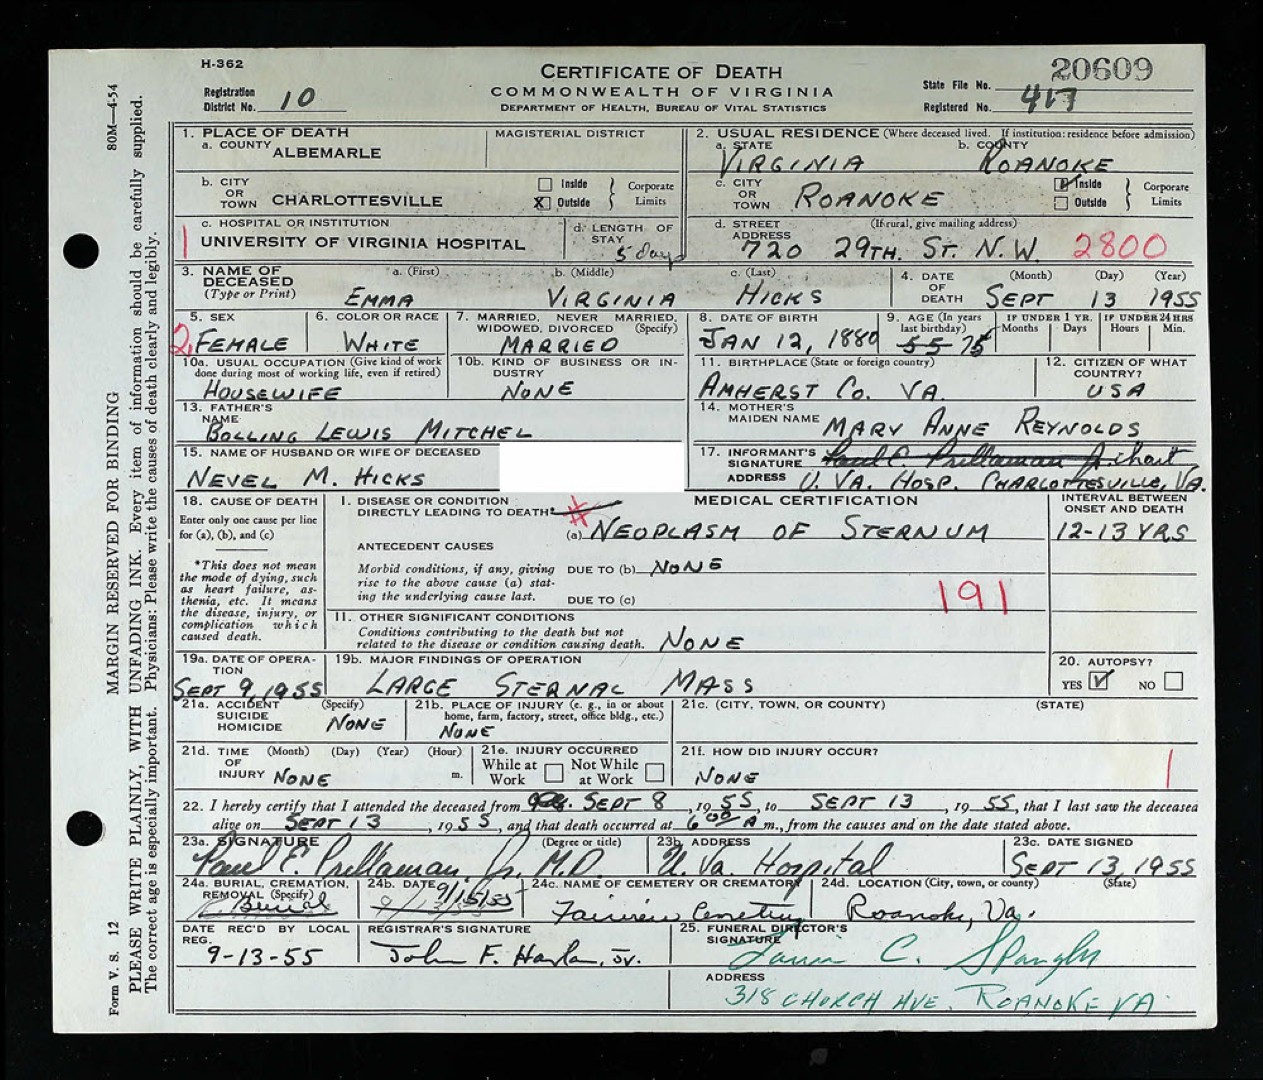 H-362
CERTIFICATE OF DEATH
COMMONWEALTH OF VIRGINIA
DEPARTMENT OF HEALTH, BUREAU OF VITAL STATISTICS
Registration District No. 10
State File No. 20609
Registered No. 417
80M—4-54
MARGIN RESERVED FOR BINDING
PLEASE WRITE PLAINLY, WITH UNFADING INK. Every item of information should be carefully supplied.
The correct age is especially important. Physicians: Please write the causes of death clearly and legibly.
Form V. S. 12
1. PLACE OF DEATH
a. COUNTY ALBEMARLE
MAGISTERIAL DISTRICT
2. USUAL RESIDENCE (Where deceased lived. If institution: residence before admission)
a. STATE VIRGINIA
b. COUNTY ROANOKE
b. CITY OR TOWN CHARLOTTESVILLE
Inside
X Outside
Corporate Limits
c. CITY OR TOWN ROANOKE
Inside
Outside
Corporate Limits
c. HOSPITAL OR INSTITUTION
1 UNIVERSITY OF VIRGINIA HOSPITAL
d. LENGTH OF STAY 5 days
d. STREET ADDRESS (If rural, give mailing address)
720 29TH. ST. N.W. 2800
3. NAME OF DECEASED (Type or Print)
a. (First) EMMA
b. (Middle) VIRGINIA
c. (Last) HICKS
4. DATE OF DEATH (Month) (Day) (Year)
SEPT 13 1955
5. SEX
2 FEMALE
6. COLOR OR RACE
WHITE
7. MARRIED, NEVER MARRIED, WIDOWED, DIVORCED (Specify)
MARRIED
8. DATE OF BIRTH
JAN 12, 1880
9. AGE (In years last birthday)
55 75
IF UNDER 1 YR. Months Days
IF UNDER 24 HRS Hours Min.
10a. USUAL OCCUPATION (Give kind of work done during most of working life, even if retired)
HOUSEWIFE
10b. KIND OF BUSINESS OR INDUSTRY
NONE
11. BIRTHPLACE (State or foreign country)
AMHERST CO. VA.
12. CITIZEN OF WHAT COUNTRY?
USA
13. FATHER'S NAME
BOLLING LEWIS MITCHEL
14. MOTHER'S MAIDEN NAME MARY ANNE REYNOLDS
15. NAME OF HUSBAND OR WIFE OF DECEASED
NEVEL M. HICKS
17. INFORMANT'S SIGNATURE Paul E. Prillaman Jr. chart
ADDRESS U. VA. HOSP. CHARLOTTESVILLE, VA.
18. CAUSE OF DEATH
Enter only one cause per line for (a), (b), and (c)
*This does not mean the mode of dying, such as heart failure, asthenia, etc. It means the disease, injury, or complication which caused death.
MEDICAL CERTIFICATION
INTERVAL BETWEEN ONSET AND DEATH
I. DISEASE OR CONDITION DIRECTLY LEADING TO DEATH*
(a) NEOPLASM OF STERNUM
12-13 YRS
ANTECEDENT CAUSES
Morbid conditions, if any, giving rise to the above cause (a) stating the underlying cause last.
DUE TO (b) NONE
DUE TO (c)
191
II. OTHER SIGNIFICANT CONDITIONS
Conditions contributing to the death but not related to the disease or condition causing death. NONE
19a. DATE OF OPERATION
SEPT 9, 1955
19b. MAJOR FINDINGS OF OPERATION
LARGE STERNAL MASS
20. AUTOPSY?
YES ✓ NO
21a. ACCIDENT SUICIDE HOMICIDE (Specify)
NONE
21b. PLACE OF INJURY (e. g., in or about home, farm, factory, street, office bldg., etc.)
NONE
21c. (CITY, TOWN, OR COUNTY) (STATE)
21d. TIME OF INJURY (Month) (Day) (Year) (Hour) m.
NONE
21e. INJURY OCCURRED
While at Work
Not While at Work
21f. HOW DID INJURY OCCUR?
NONE
1
22. I hereby certify that I attended the deceased from SEPT 8, 1955, to SEPT 13, 1955, that I last saw the deceased
alive on SEPT 13, 1955, and that death occurred at 6:00 A m., from the causes and on the date stated above.
23a. SIGNATURE (Degree or title)
Paul E. Prillaman, Jr. M.D.
23b. ADDRESS
U. Va. Hospital
23c. DATE SIGNED
SEPT 13, 1955
24a. BURIAL, CREMATION, REMOVAL (Specify)
Burial
24b. DATE 9/15/55
9/13/55
24c. NAME OF CEMETERY OR CREMATORY
Fairview Cemetery
24d. LOCATION (City, town, or county) (State)
Roanoke, Va.
DATE REC'D BY LOCAL REG.
9-13-55
REGISTRAR'S SIGNATURE
John F. Harlan, Jr.
25. FUNERAL DIRECTOR'S SIGNATURE
C. Spangler
ADDRESS
318 CHURCH AVE. ROANOKE VA